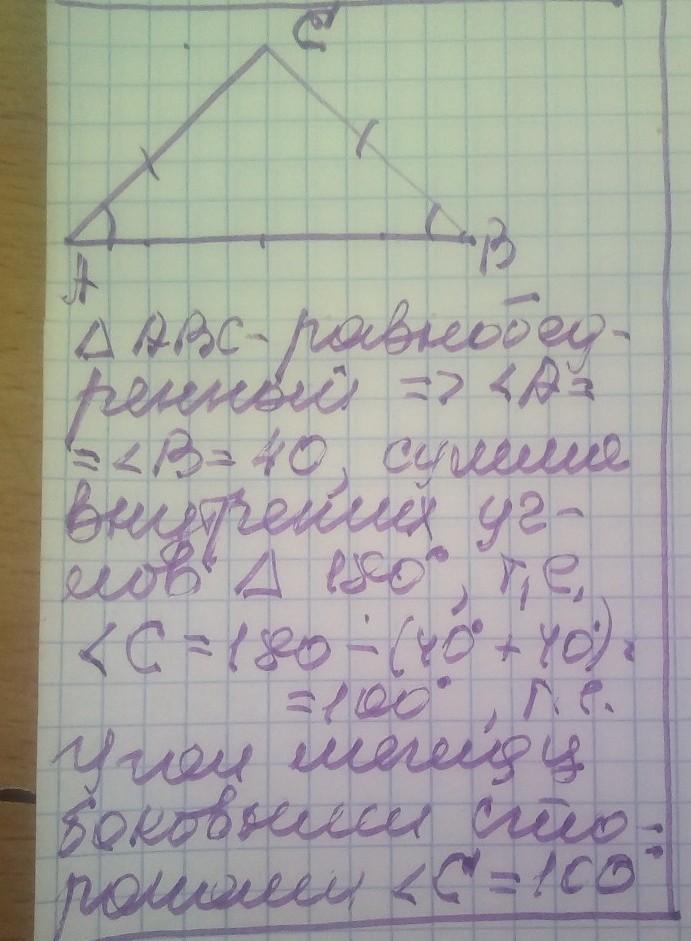 C
A
B
Δ ABC - равнобед-
ренный => <A=
= <B = 40, сумма
внутренних уг-
лов Δ 180°, т.е.
<C = 180 - (40° + 40°) =
= 100°, т.е.
Угол между
боковыми сто-
ронами <C = 100°